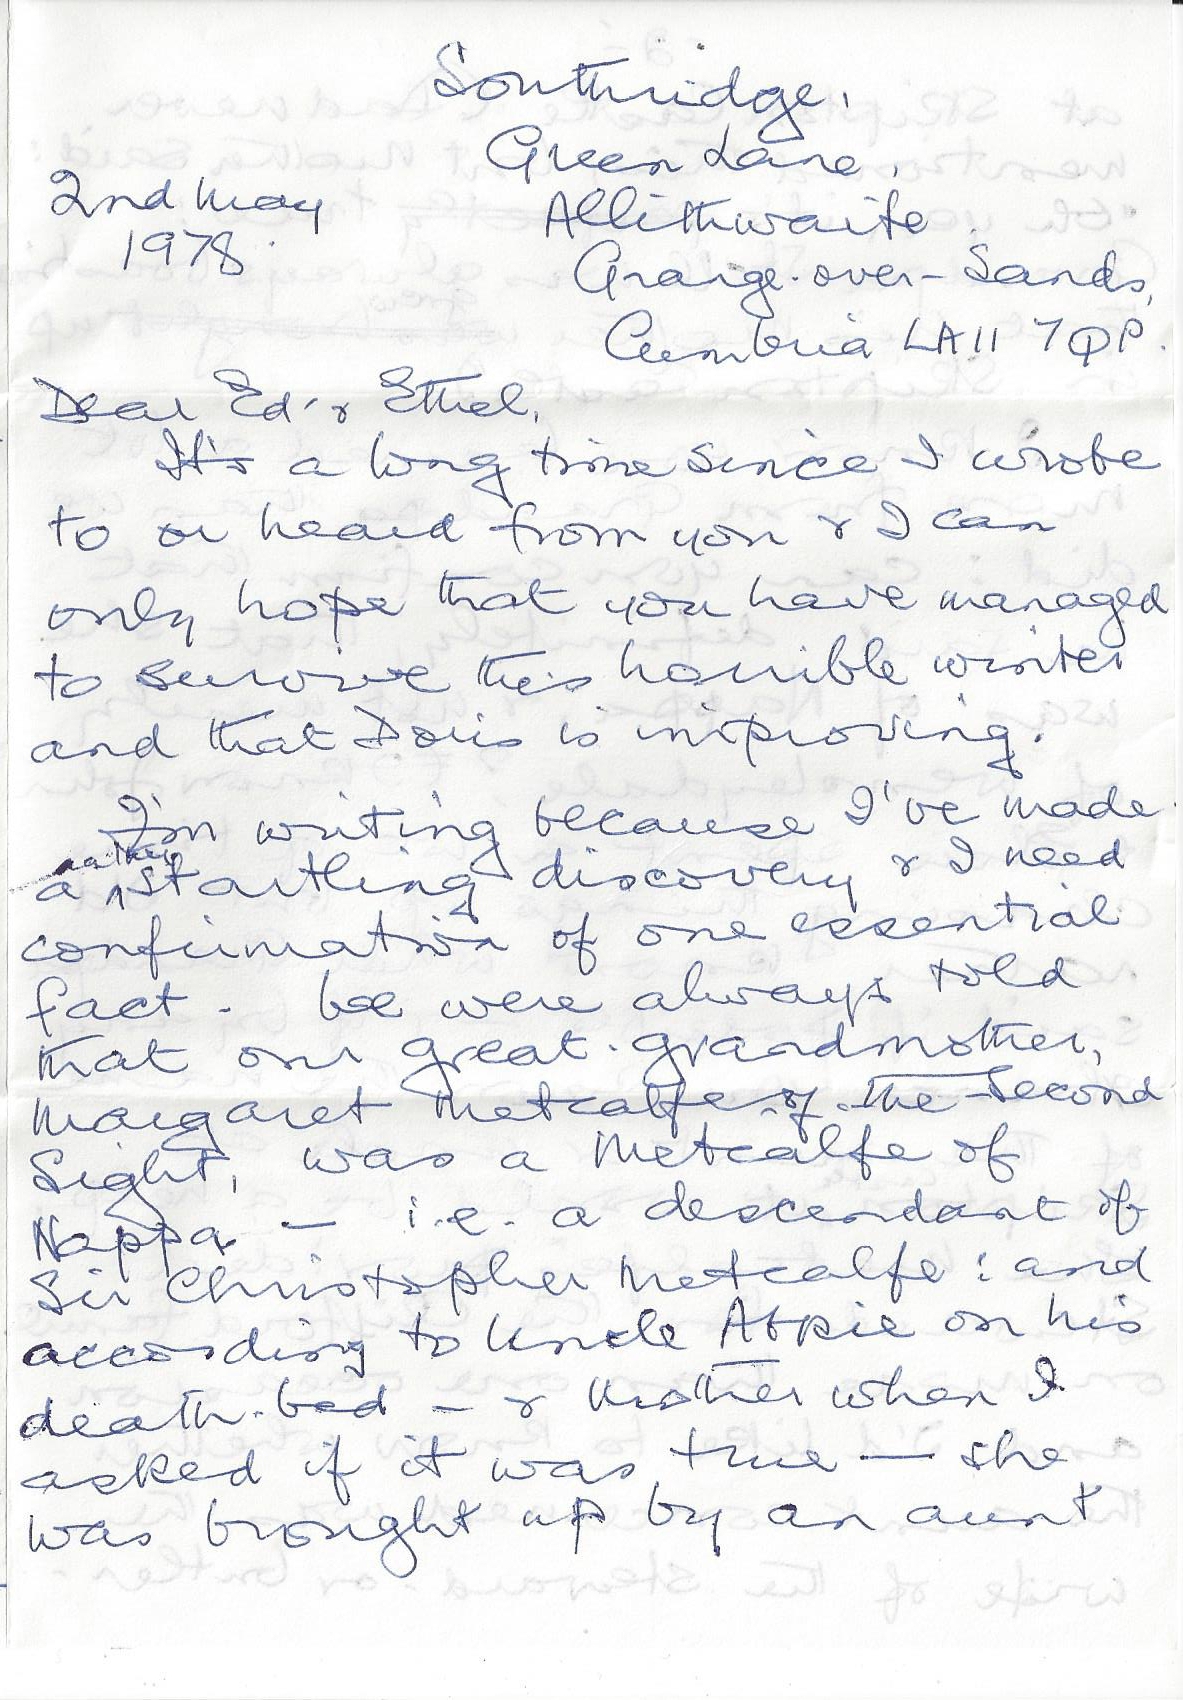 Southridge,
Green Lane,
2nd May
Allithwaite
1978.
Grange-over-Sands,
Cumbria LA11 7QP.
Dear Ed & Ethel,
It's a long time since I wrote
to or heard from you & I can
only hope that you have managed
to survive this horrible winter
and that Doris is improving.
I'm writing because I've made
a rather startling discovery & I need
confirmation of one essential
fact. We were always told
that our great-grandmother,
Margaret Metcalfe of the Second
Sight, was a Metcalfe of
Nappa — i.e. a descendant of
Sir Christopher Metcalfe: and
according to Uncle on his
death-bed — & Mother when I
asked if it was true — she
was brought up by an aunt